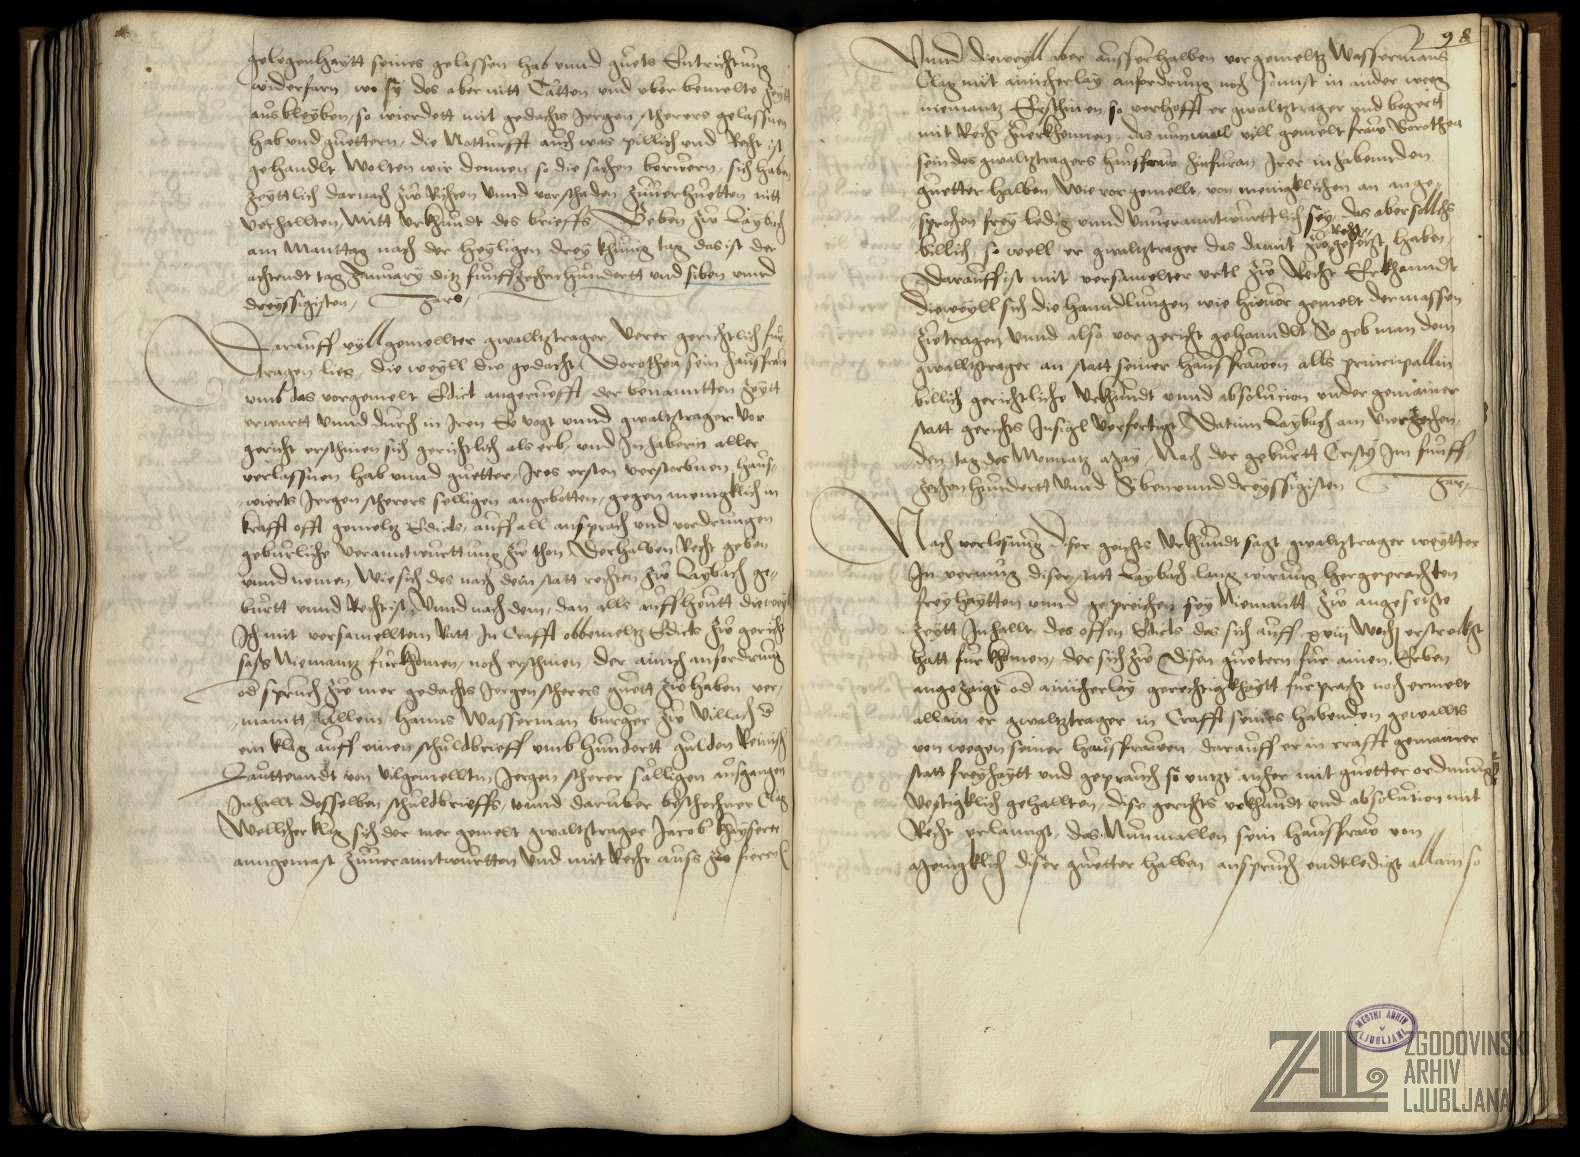 gelegenhaytt seines gelassen hab unnd guets Entrichtung
widerfarn wo sy des aber nitt Tätten und uber bemelte Zeytt
ausbleyben, so wierdett mit gedachts Jergen Scherers gelassnen
hab und guettern, die Notturfft auch was pillich und Recht ist
gehandlt Wolten wir dennen so die sachen beruern, sich haben
Zeyttlich darnach Zw Richten Unnd vor schaden Zuuerhuetten nitt
verhallten, Mitt Urkhundt des brieffs, Geben Zw Laybach
am Manttag nach der heyligen drey khunig tag das ist der
achtendt tag January ditz funffzechenhundertt und siben unnd
dreyssigisten, Jars,
Darauff vyll gemellter gwalltztrager Verer gerichtlich fur
tragen lies, die weyll die gedacht Dorothea sein hausfrau
umb das vorgemelt Edict angeruefft, der benanntten Zeytt
erwartt unnd durch in Iren Eevogt unnd gwaltztrager Vor
gericht erschinen sich gerichtlich als erb, und Inhaberin aller
verlassnen hab unnd guetter, Ires ersten verstorbnen haus,
wierts Jergen scherers selligen angebotten, gegen menigklich in
krafft offt gemeltz Edicts, auff all ansprach und vordrungen
geburliche veranntwurttung Zw thon, Derhalben Recht geben
unnd nemen, Wie sich des nach dem statt rechten Zw Laybach ge,
burtt unnd Recht ist, Unnd nach dem, dan alls auff heutt die weyl
Ich mit versamelltem Ratt In Crafft obbemeltz Edicts Zw gericht
sass Niemantz furkhomen, noch erschinen, der ainich anfordrung
od spruch Zw mer gedachts Jergen scherers guett Zw haben ver,
maintt, Allein hanns Wasserman burger Zw Villach
ein klag auff einen schuldbrieff umb hundertt gulden Reinisch
Lauttendt von vilgemelltn Jergen scherer sälligen ausgangen
Inhallt desselben schuldbrieffs, unnd daruber beschechner Clag
Wellicher klag sich der mer gemelt gwaltztrager Jacob khayserer
anngemast Zuuerantwurtten Und mit Recht auss Zw fieren
98
Unnd dieweyll aber ausserhalben vor gemeltz Wassermans
Clag mit ainicherlay anfordrung noch sunst in ander weeg
niemantz Erschinen so verhofft er gwaltztrager und begertt
mit Recht Zuerkhennen, das nunmall vill gemelt fraw Dorothea
sein des gwaltztragers hausfraw hinfuran Irer inhabennden
guetter halben, Wie vor gemellt, von menigklichen an ange,
sprochen frey ledig unnd unuerantwurttlich sey, das aber sollichs
billich, so well er gwaltztrager das damit Zw Recht gesetzt haben,
Darauff ist mit versamelter urtl Zw Recht Erkhanndt
dieweyll sich die hanndlungen wie hieuor gemelt dermassen
Zuetragen Unnd also vor gericht gehanndlt, So geb man dem
gwalltztrager an statt seiner hausfrawen alls principallin
billich gerichtliche Urkhundt unnd absolucion under gemainer
statt gerichts Insigl Verfertigt, Datum Laybach am Vierzechen,
den tag des Monatz May, Nach der geburtt Cristy Im funff
zechenhundertt Unnd Sibenunnddreyssigisten Jar,
Nach verlesung diser gerichts Urkhundt sagt gwaltztrager weytter
In vermug diser statt Laybach lang wirung hergeprachten
freyhaytten unnd geprauchen sey Niemantt Zw angesetzte
Zeytt Inhallt des offen Edicts das sich auff xviij Woch erstreckht
hatt furkhomen, der sich Zw disen guetern fur ainen Erben
angezaigt od ainicherlay gerechtigkhaytt furpracht noch ermelt
allain er gwaltztrager in Crafft seines habenden gewallts
von wegen seiner hausfrawen, darauff er in crafft gemainer
statt freyhaytt und geprauch so untzt anher mit guetter ordnung
Vestigklich gehallten, dise gerichts urkhundt und absolution mit
Recht erlanngt, das Nunmallen sein hausfraw von
Menigklich diser guetter halben anspruch endtledigt allain so
MESTNI ARHIV
V
LJUBLJANI
ZAL
ZGODOVINSKI
ARHIV
LJUBLJANA